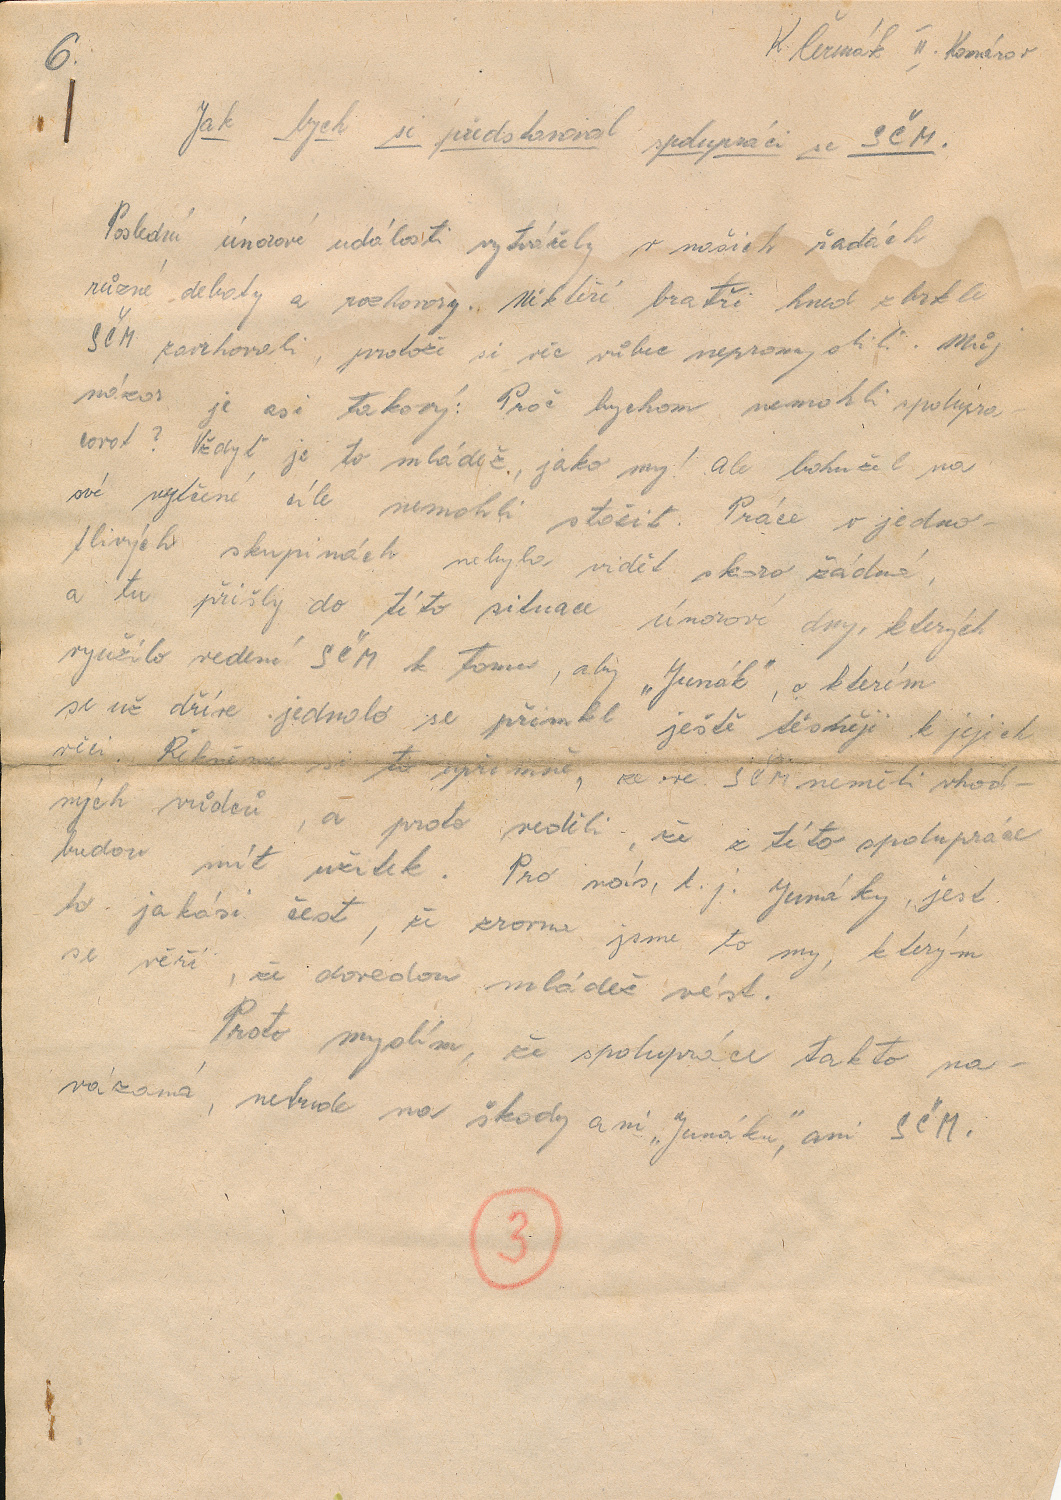 6.
K. Čermák II. Komárov
Jak bych si představoval spolupráci se SČM.
Poslední únorové události vytvářely v našich řadách
různé debaty a rozhovory. Někteří bratři hned zbrkle
SČM zavrhovali, protože si věc vůbec nepromyslili. Můj
názor je asi takový: Proč bychom nemohli spolupra-
covat? Vždyť je to mládež, jako my! Ale bohužel na
své vytčené cíle nemohli stačit. Práce v jedno-
tlivých skupinách nebyla vidět skoro žádná,
a tu přišly do této situace únorové dny, kterých
využilo vedení SČM k tomu, aby „Junák", o kterém
se už dříve jednalo se přimkl ještě těsněji k jejich
věci. Řekněme si to upřímně, že ve SČM neměli vhod-
ných vůdců, a proto věděli, že z této spolupráce
budou mít užitek. Pro nás, t. j. Junáky, jest
to jakási čest, že zrovna jsme to my, kterým
se věří, že dovedou mládež vést.
Proto myslím, že spolupráce takto na-
vázaná, nebude na škody ani „Junáku", ani SČM.
3